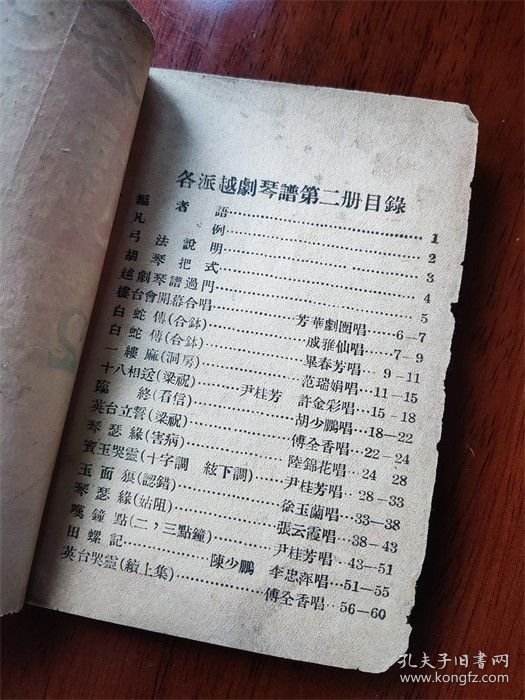 各派越劇琴譜第二册目錄
編者語 1
凡例 2
弓法說明 3
胡琴把式 4
越劇琴譜過門 5
樓台會開幕合唱 芳華劇團唱 6—7
白蛇傳(合鉢) 戚雅仙唱 7—9
白蛇傳(合鉢) 畢春芳唱 9—11
一縷麻(洞房) 范瑞娟唱 11—15
十八相送(梁祝) 尹桂芳 許金彩唱 15—18
臨終(看信) 胡少鵬唱 18—22
英台立誓(梁祝) 傅全香唱 22—24
琴瑟緣(害病) 陸錦花唱 24 28
賓玉哭靈(十字調 絃下調) 尹桂芳唱 28—33
玉面狼(認錯) 徐玉蘭唱 33—38
琴瑟緣(姑阻) 張云霞唱 38—43
嘆鐘點(二,三點鐘) 尹桂芳唱 43—51
田螺記 陳少鵬 李忠萍唱 51—55
英台哭靈(續上集) 傅全香唱 56—60
孔夫子旧书网
www.kongfz.com